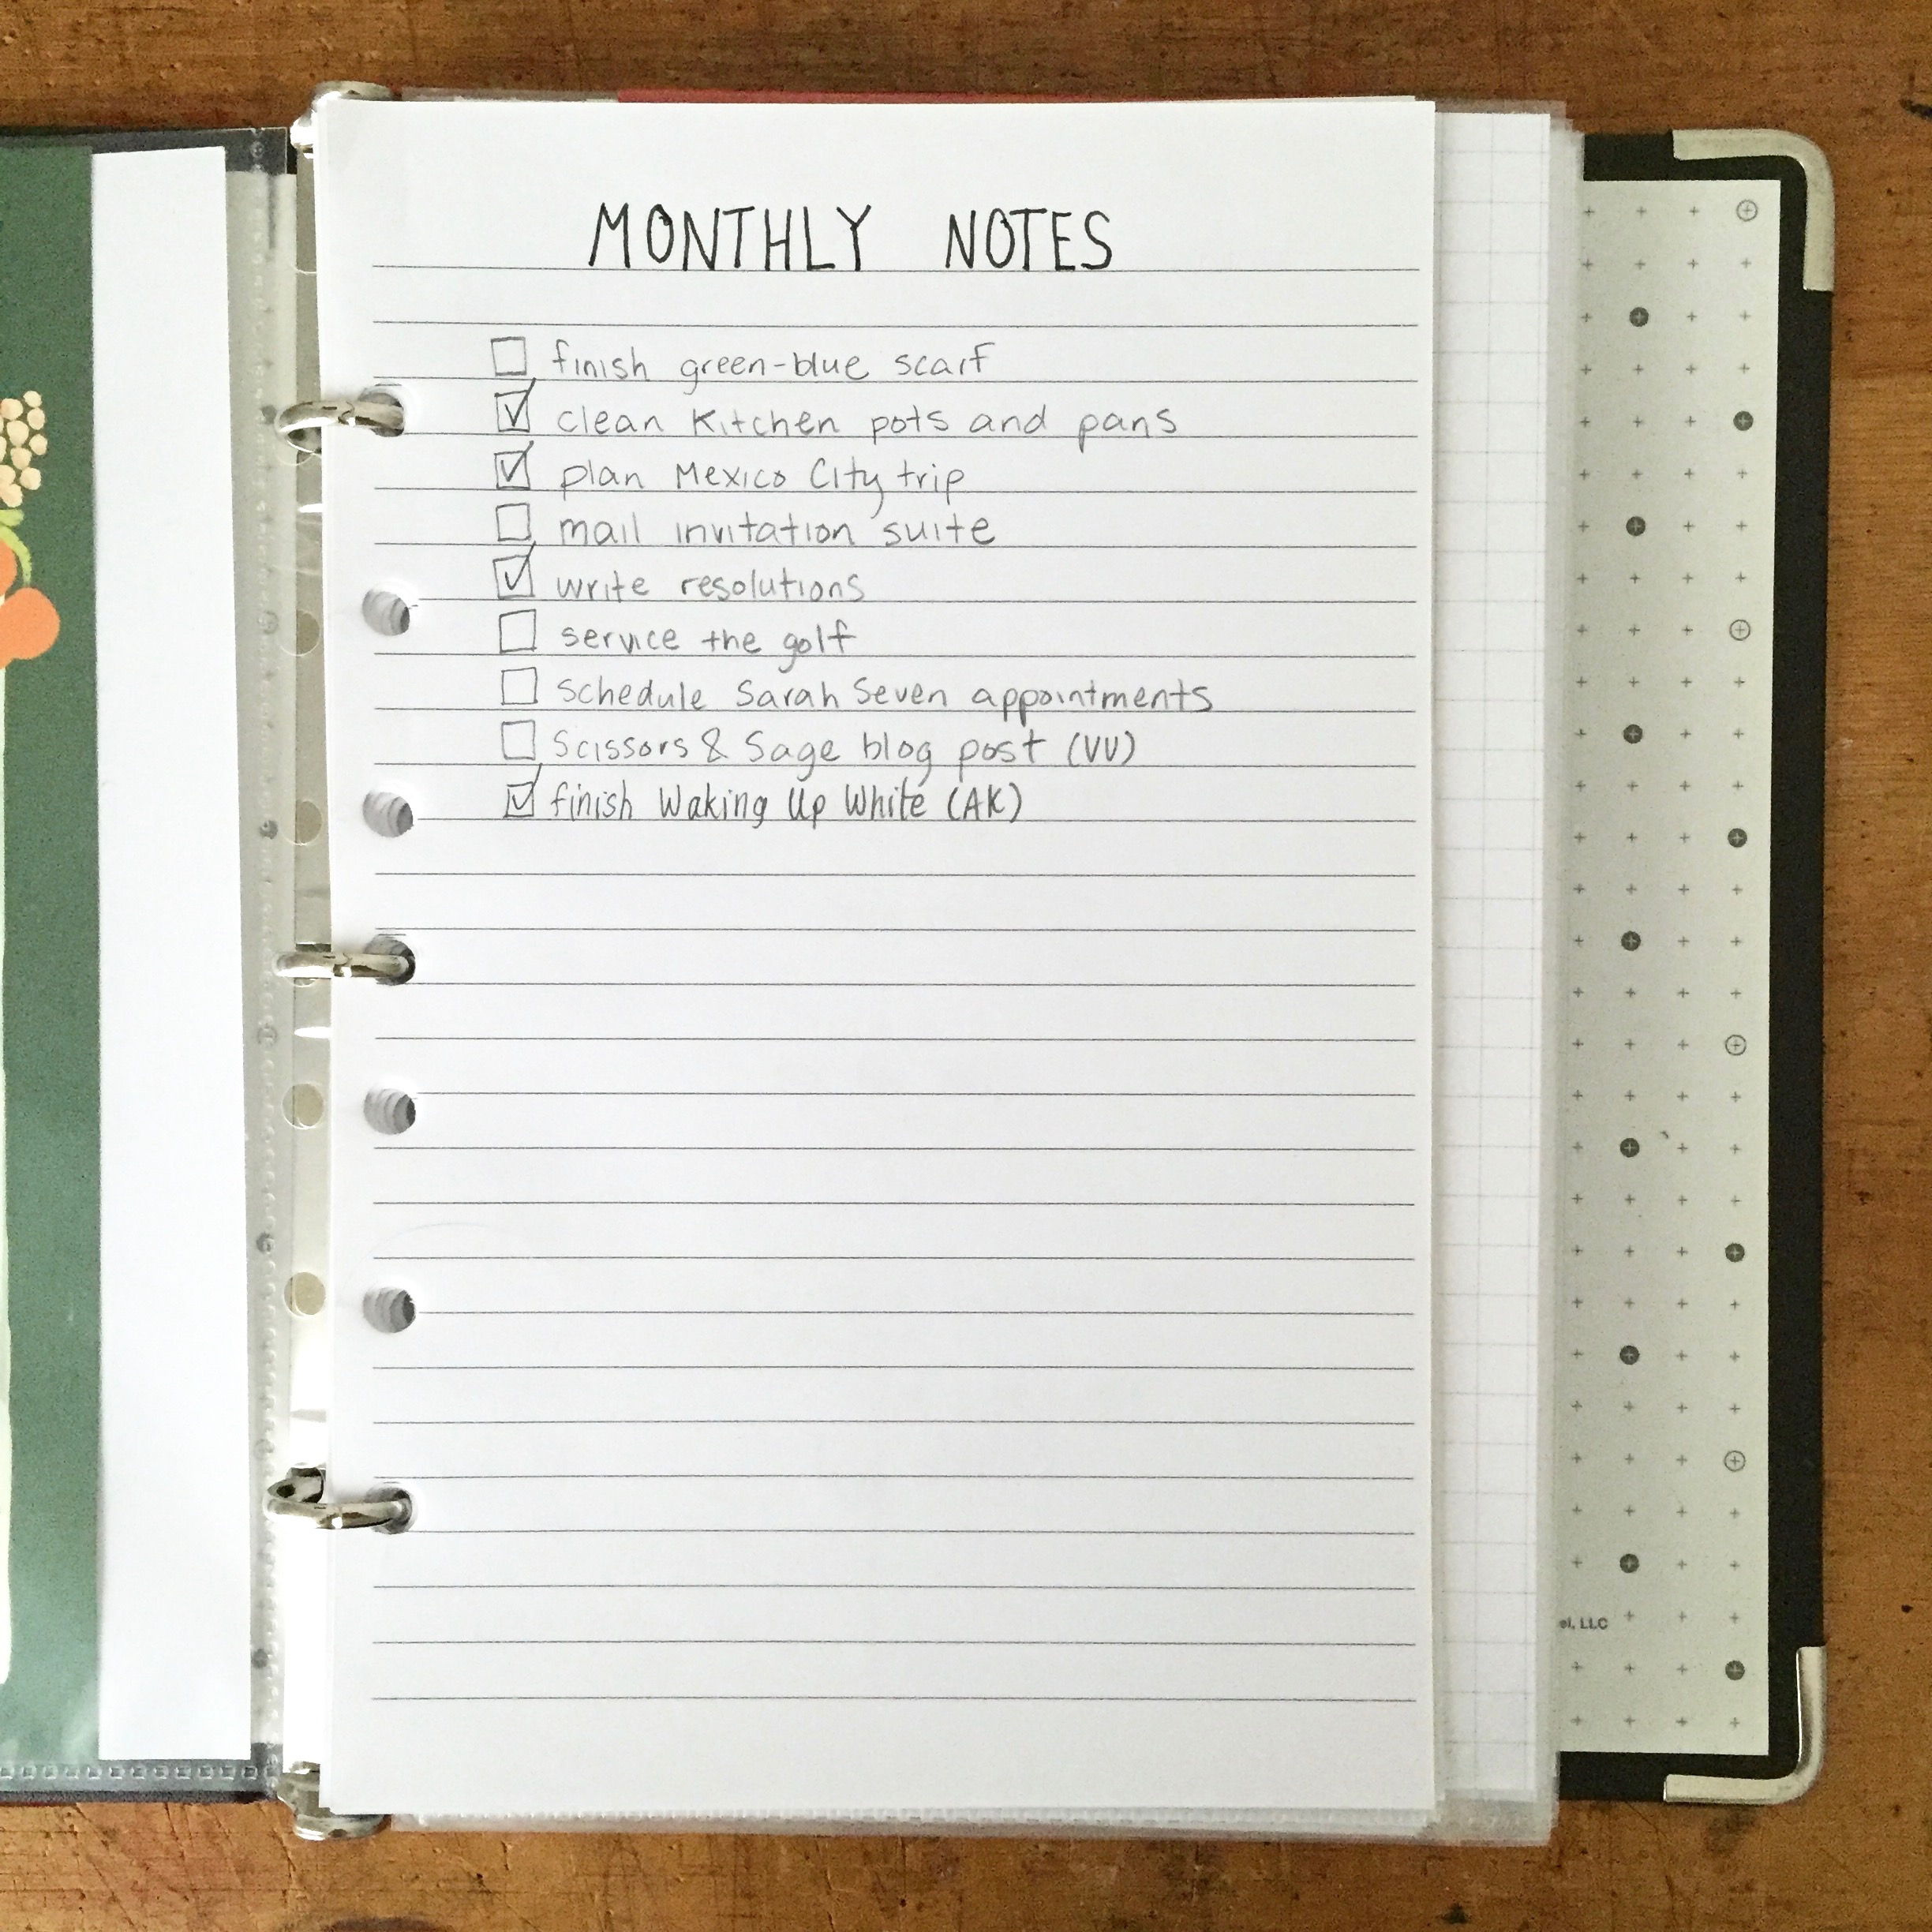 MONTHLY NOTES
finish green-blue scarf
clean Kitchen pots and pans
plan Mexico City trip
mail invitation suite
write resolutions
service the golf
schedule Sarah Seven appointments
Scissors & Sage blog post (VV)
finish Waking Up White (AK)
el, LLC